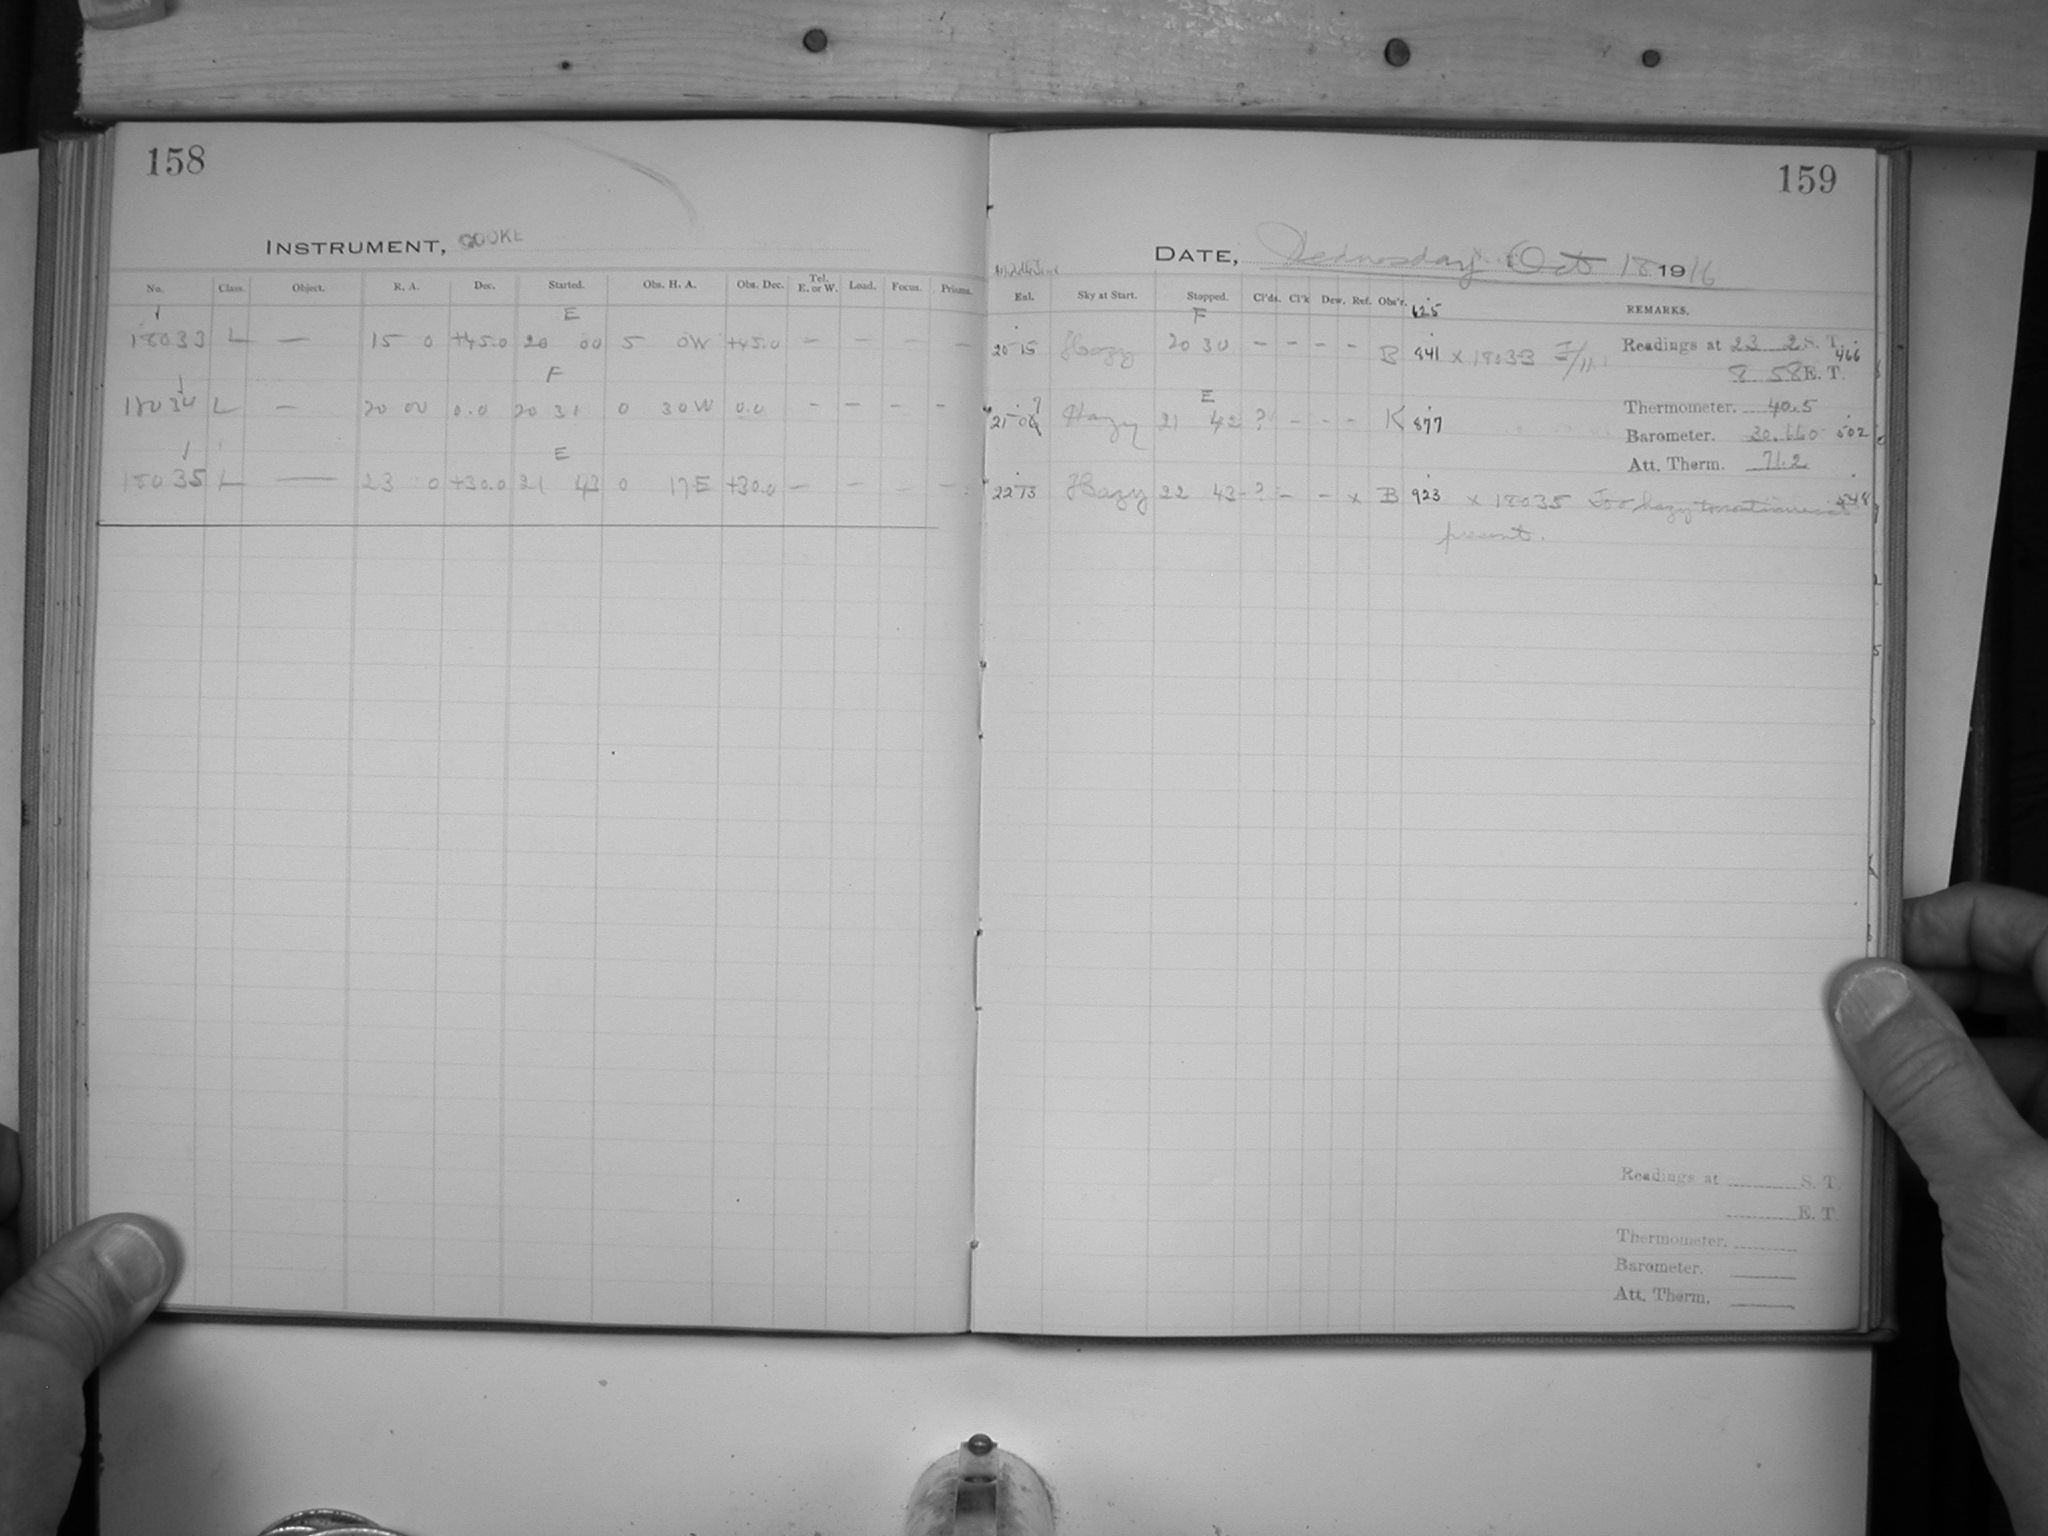 158
INSTRUMENT, COOKE
No. Class. Object. R. A. Dec. Started. Obs. H. A. Obs. Dec. Tel. E. or W. Load. Focus. Prisms.
E
18033 L — 15 0 +45.0 20 00 5 0W +45.0 — — — — —
F
18034 L — 20 00 0.0 20 31 0 30W 0.0 — — — — —
E
18035 L — 23 0 +30.0 21 43 0 17E +30.0 — — — — —
159
DATE, Wednesday Oct 18 1916
Middle Time
Enl. Sky at Start. Stopped. Cl'ds. Cl'k Dew. Ref. Obs'r. 625 REMARKS.
F
20 15 Hazy 20 30 — — — — B 841 x 18033
Readings at 23 2 S. T. 466
8 58 E. T.
E
21 Hazy 21 42 ? — — — K 877
Thermometer. 40.5
Barometer. 30.660 502
Att. Therm. 71.2
22 13 Hazy 22 43 ? — — x B 923 x 18035 Too hazy to continue at 548
present.
Readings at S. T.
E. T.
Thermometer.
Barometer.
Att. Therm.